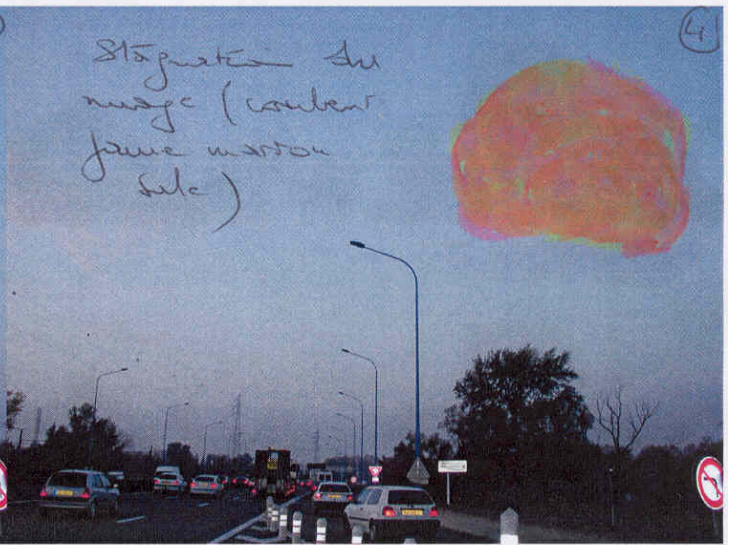 4
Stagnation du
nuage (couleur
jaune marron
sale)